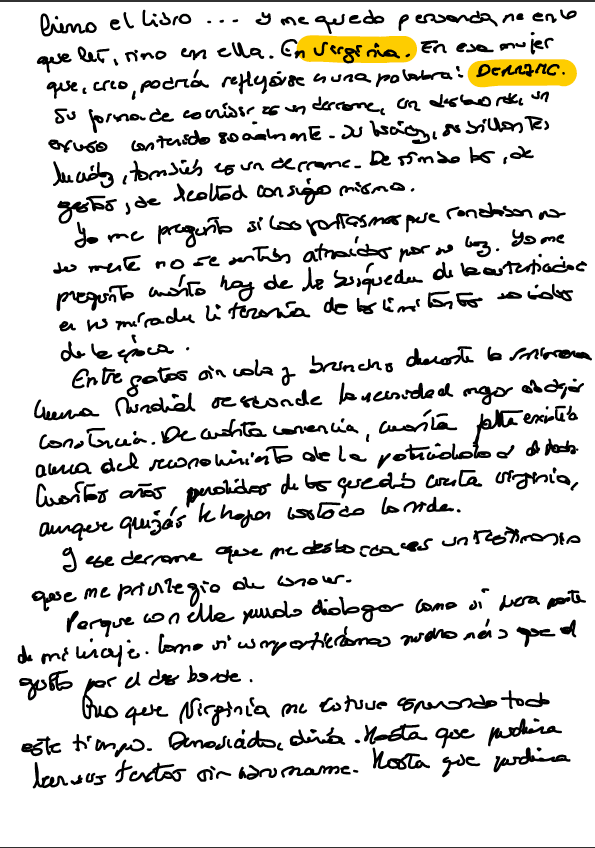 Cierro el libro ... Y me quedo pensando, no en lo
que leí, sino en ella. En Virginia. En esa mujer
que, creo, podría reflejarse en una palabra: DERRAME.
Su forma de escribir es un derrame, un desborde, un
exceso contenido socialmente. Su locura, su brillante
lucidez, también es un derrame. De símbolos, de
gestos, de lealtad consigo misma.
Yo me pregunto si los fantasmas que rondaban por
su mente no se sentían atraídos por su luz. Yo me
pregunto cuánto hay de la búsqueda de la autenticidad
en su mirada literaria de los limitantes sociales
de la época.
Entre gatos sin cola y brunchs durante la Primera
Guerra Mundial se esconde la necesidad de
constancia. De cuánta conciencia, cuánta falta existía
acerca del reconocimiento de la
Cuántos años perdidos de los que dio cuenta Virginia,
aunque quizás le hayan costado la vida.
Y ese derrame que me desboca es un testimonio
que me privilegio de conocer.
Porque con ella puedo dialogar como si fuera parte
de mi linaje. Como si compartiéramos mucho más que el
gusto por el desborde.
Creo que Virginia me estuvo esperando todo
este tiempo. Demasiado, diría. Hasta que pudiera
leer sus textos sin abrumarme. Hasta que pudiera